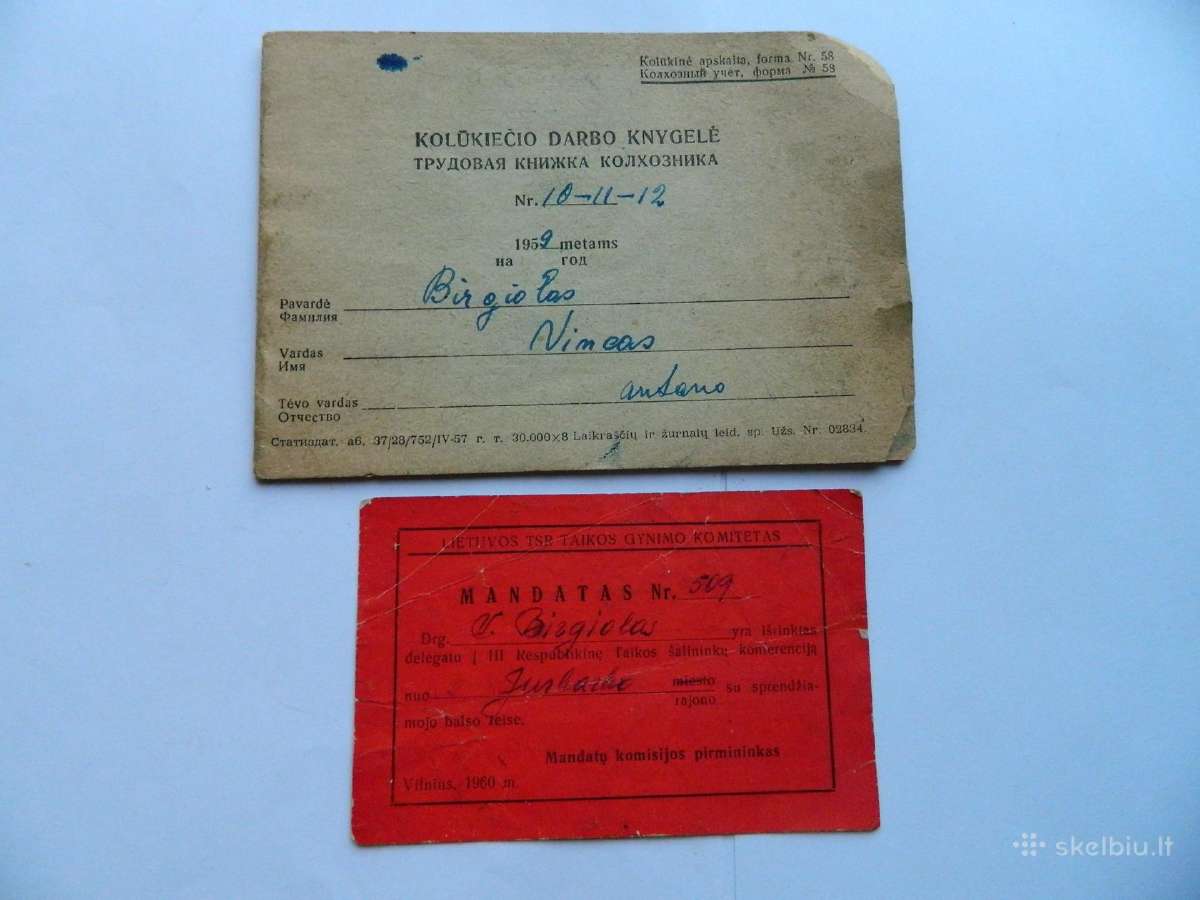 Kolūkinė apskaita, forma Nr. 58
Колхозный учет, форма № 58
KOLŪKIEČIO DARBO KNYGELĖ
ТРУДОВАЯ КНИЖКА КОЛХОЗНИКА
Nr. 10-11-12
1959 metams
на год
Pavardė Birgiolas
Фамилия
Vardas Vincas
Имя
Tėvo vardas Antano
Отчество
Статиздат. аб. 37/28/752/IV-57 г. т. 30.000×8 Laikraščių ir žurnalų leid. sp. Užs. Nr. 02834.
LIETUVOS TSR TAIKOS GYNIMO KOMITETAS
MANDATAS Nr. 509
Drg. V. Birgiolas yra išrinktas
delegatu į III Respublikinę Taikos šalininkų konferenciją
nuo Jurbarko miesto su sprendžia-
rajono
mojo balso teise.
Mandatų komisijos pirmininkas
Vilnius, 1960 m.
skelbiu.lt